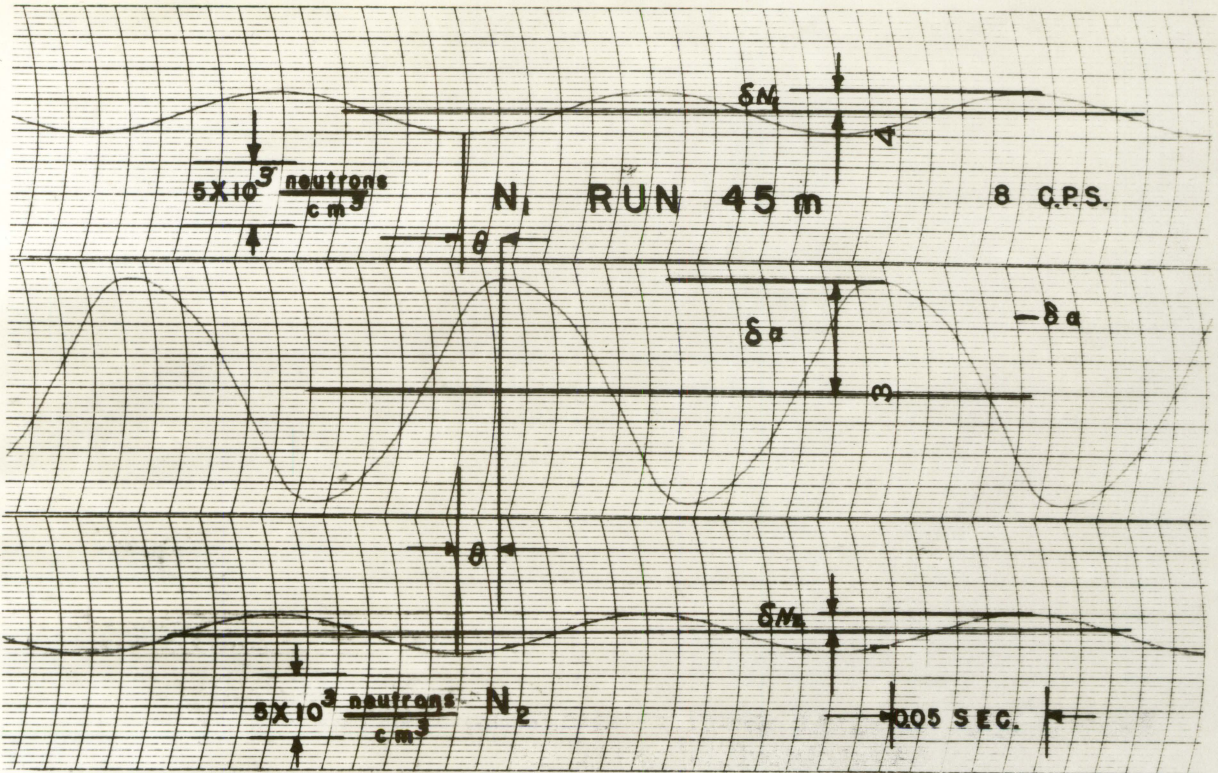 δN₁
4
5X10³ neutrons
cm³
N₁ RUN 45 m 8 C.P.S.
θ
δa
-δa
3
θ
δN₂
1
5X10³ neutrons
cm³
N₂
0.05 SEC.